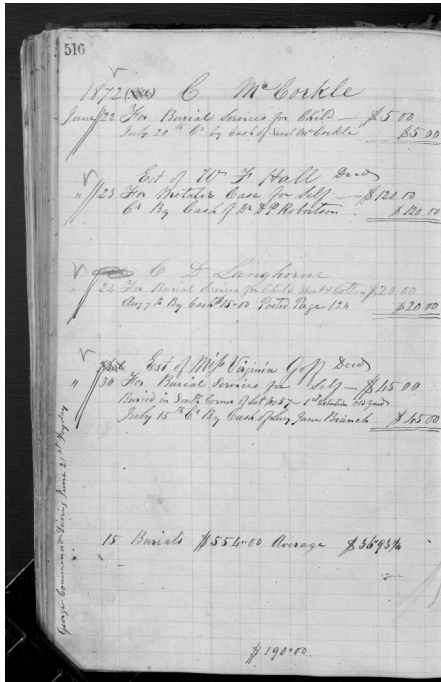 516
1872 C McCorkle
June 22 For Burial Services for Child — $5 00
July 20th Cr by Cash of McCorkle $5 00
Est of Wm Hall Decd
" 23 For Metalic Case for Self — $120.00
Cr By Cash of Dr D P Robertson $120 00
C D Langhorne
" 24 For Burial Services for Child $20.00
Aug 7th By Cash $15.00 Posted Page 124 $20 00
Est of Miss Virginia Goff Decd
" 30 For Burial Services for Self — $45 00
Buried in South Corner of Lot No 57 — 1st old yard
July 15th Cr By Cash of June Branch $45.00
15 Burials $554.00 Average $36.93
$190.00
George Commenced Driving June 27th